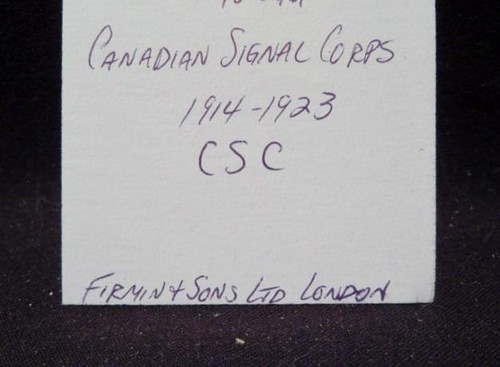 CANADIAN SIGNAL CORPS
1914-1923
CSC
FIRMIN & SONS LTD LONDON